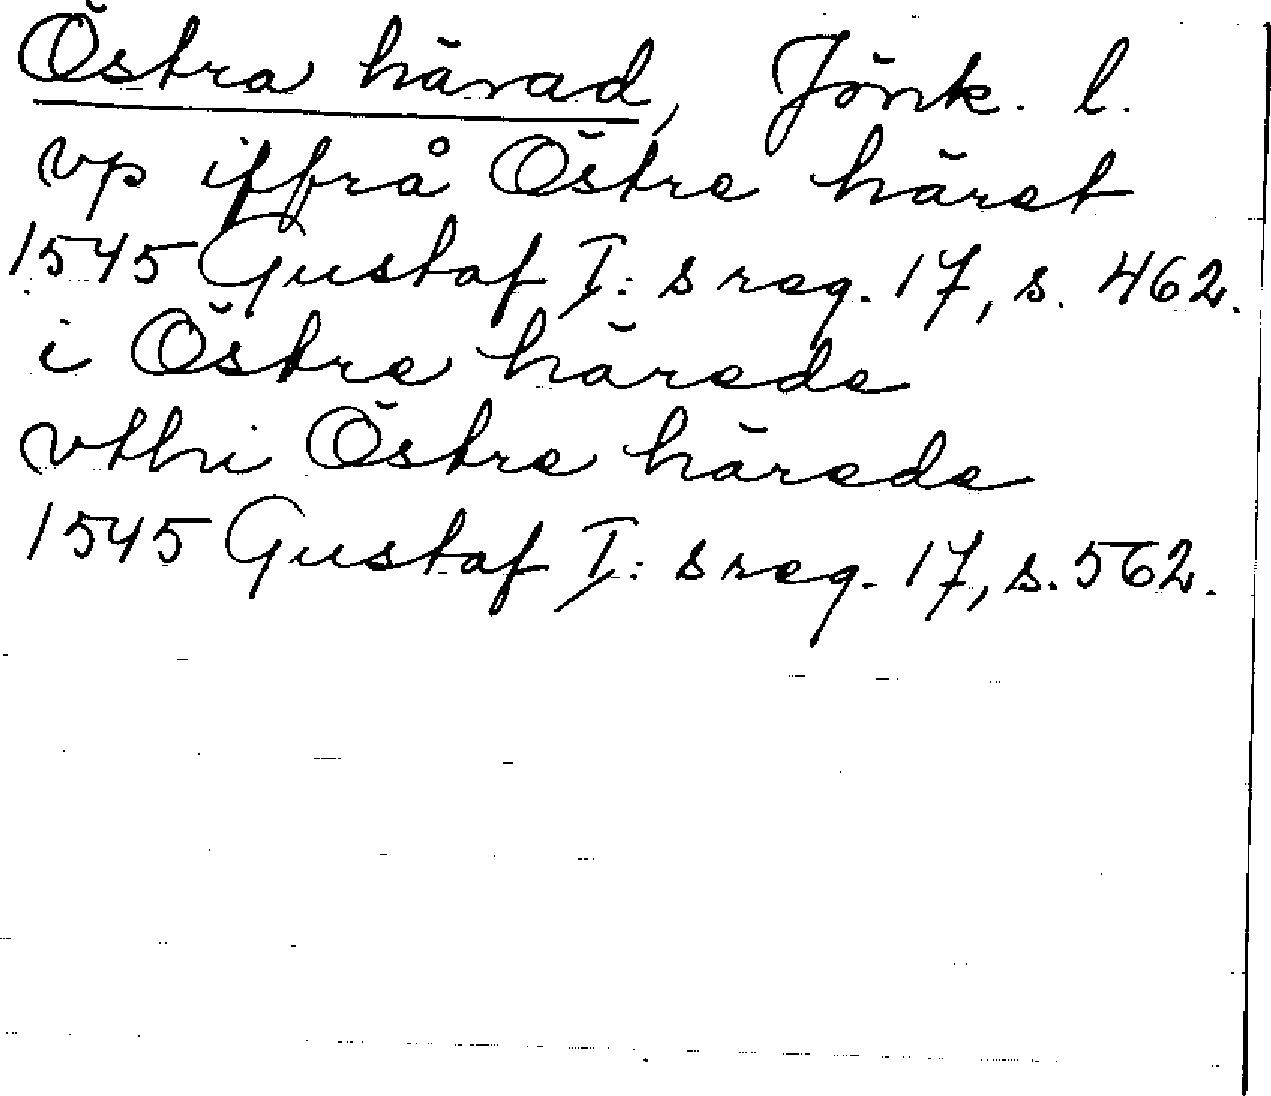 Östra härad, Jönk. l.
vp iffrå Östre häret
1545 Gustaf I:s reg. 17, s. 462.
i Östre härede
vthi Östre härede
1545 Gustaf I:s reg. 17, s. 562.